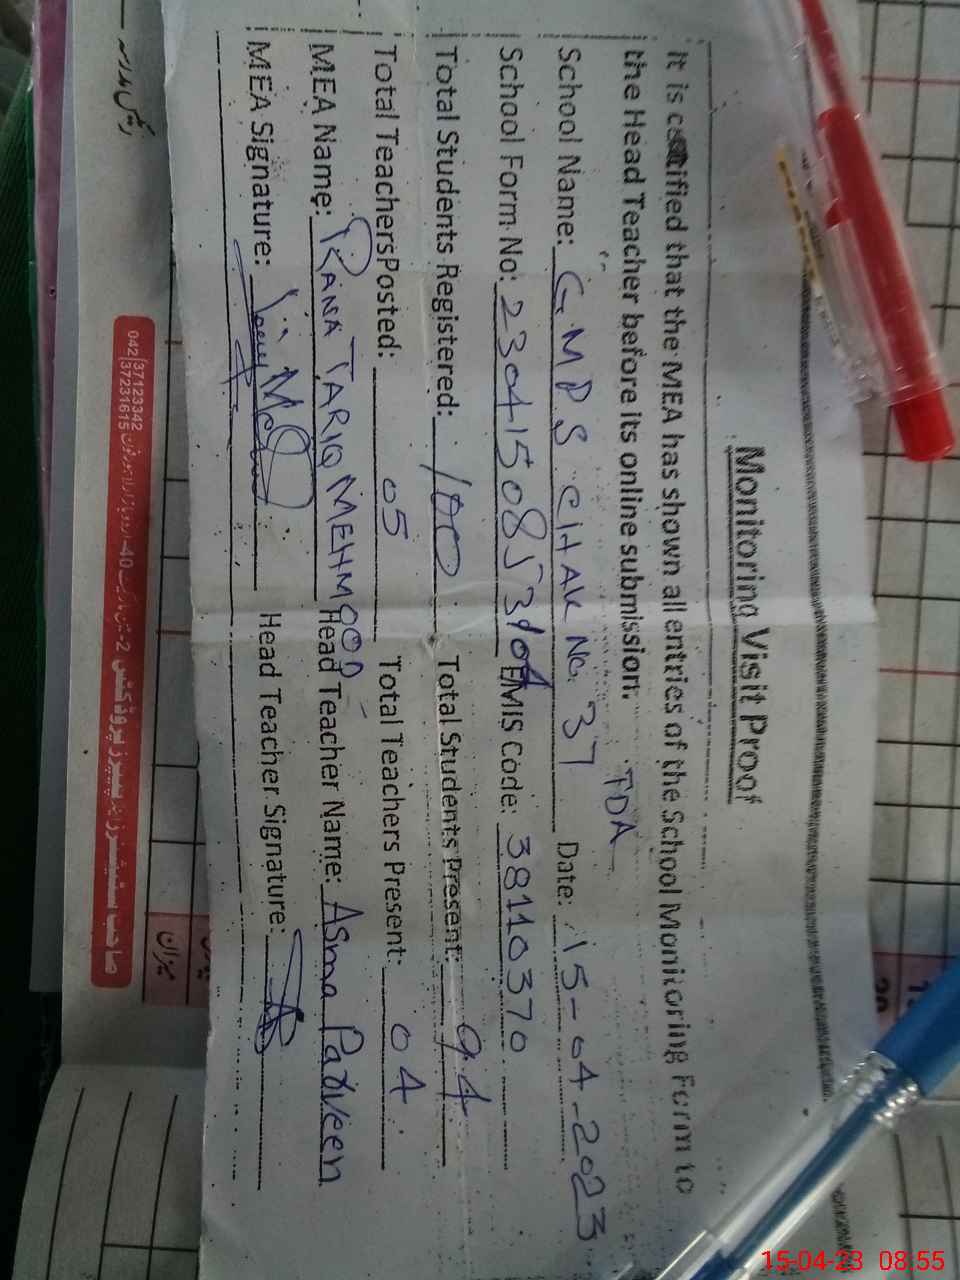 Monitoring Visit Proof
It is certified that the MEA has shown all entries of the School Monitoring Form to
the Head Teacher before its online submission.
TDA
School Name: GMPS CHAK No. 37 Date: 15-04-2023
School Form No: EMIS Code: 38110370
Total Students Registered: 100 Total Students Present: 94
Total TeachersPosted: 05 Total Teachers Present: 04
MEA Name: RANA TARIQ MEHMOOD Head Teacher Name: Asma Parveen
MEA Signature: Head Teacher Signature:
042 37123342
37231615
میزان
15-04-23 08:55